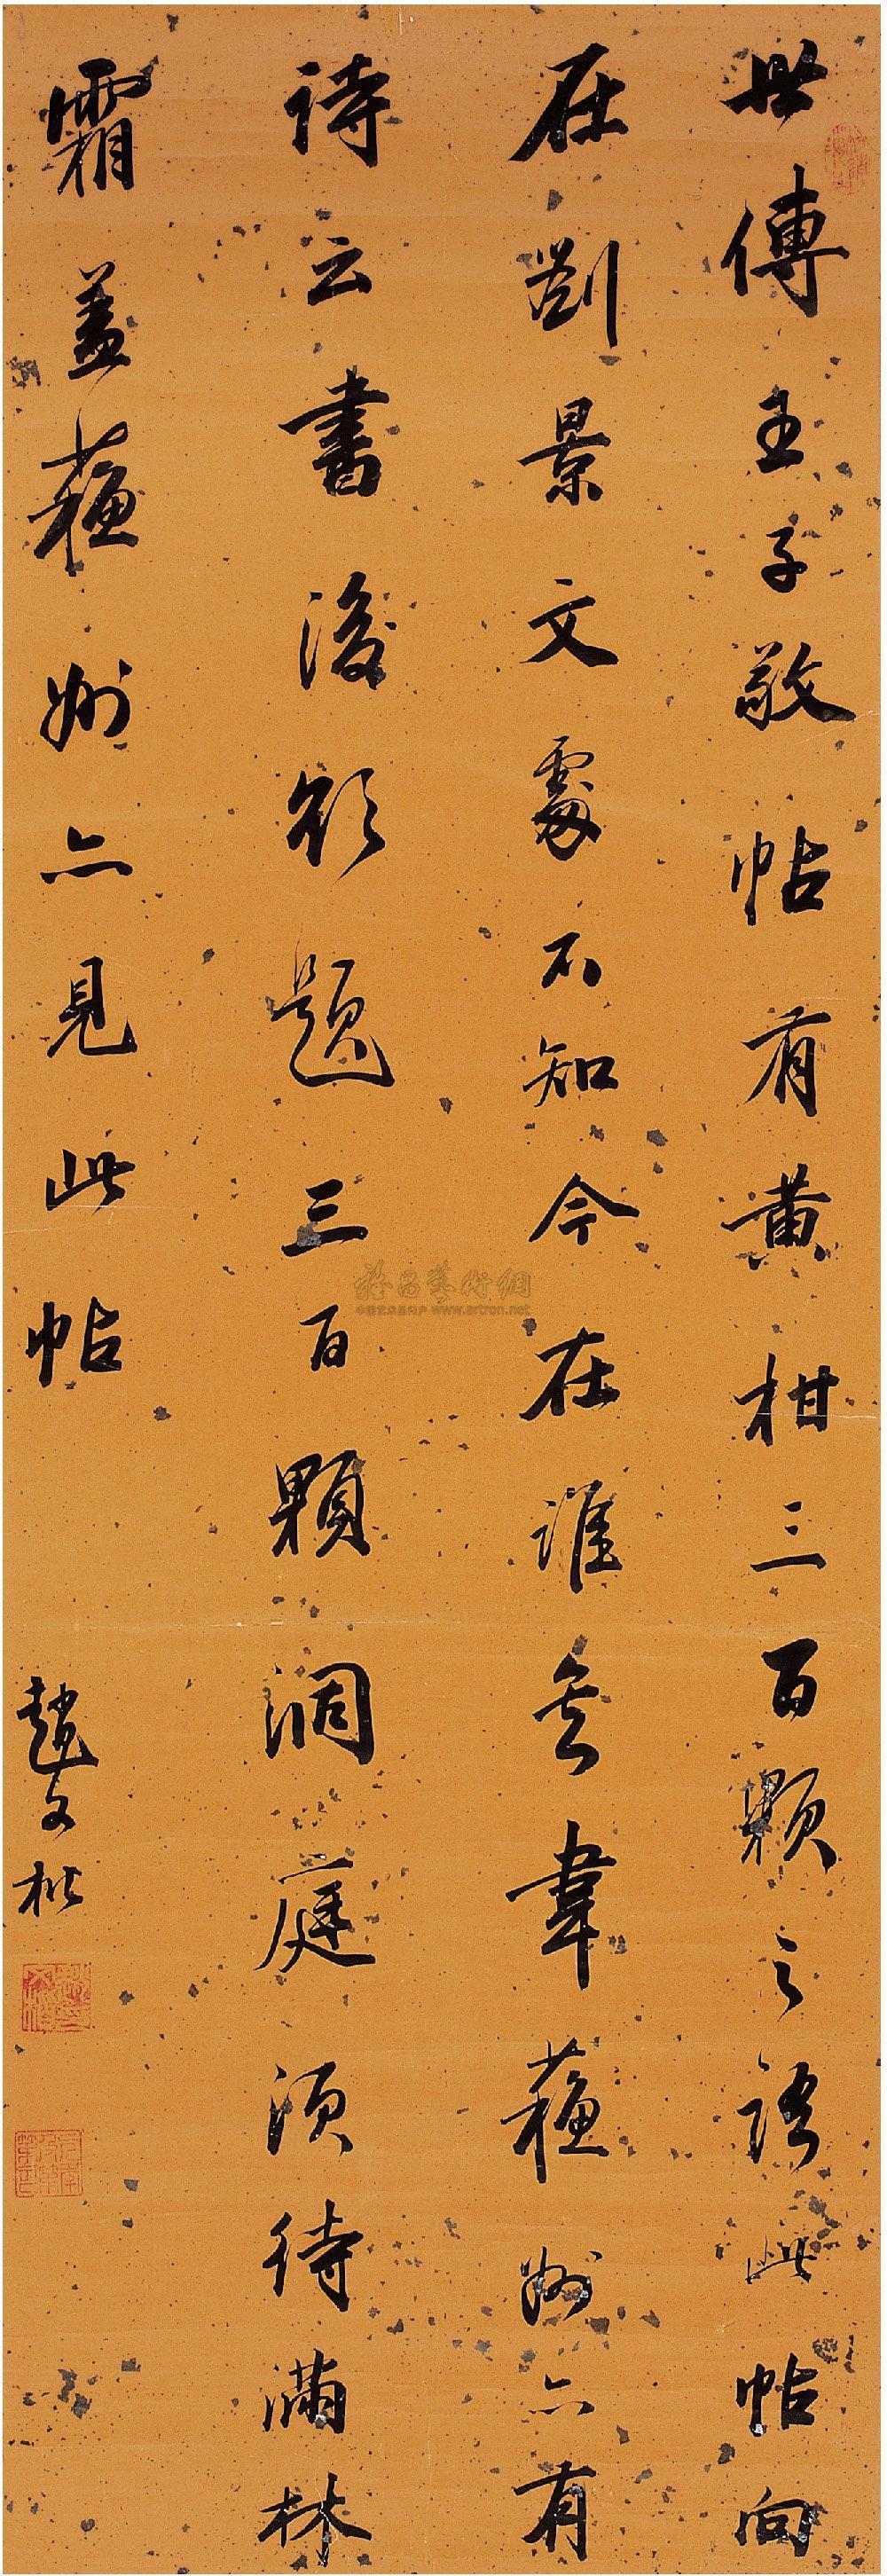 世傳王子敬帖有黄柑三百顆之語此帖向
在劉景文處不知今在誰矣韋蘇州亦有
詩云書後欲題三百顆洞庭須待滿林
霜蓋蘇州亦見此帖
趙文楷
雅昌藝術網
www.artron.net